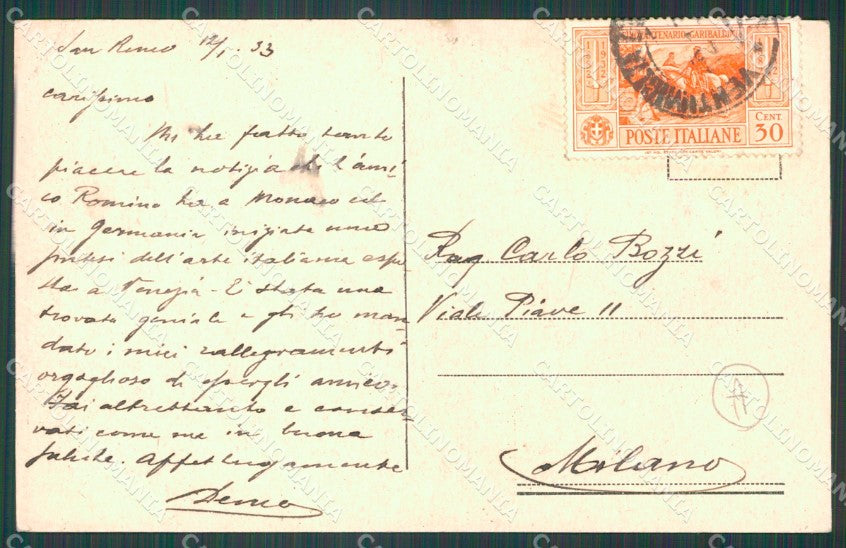 San Remo 12/1. 33
carissimo
Mi ha fatto tanto
piacere la notizia che l'ami
co Romino ha a Monaco ed
in Germania iniziata una
sintesi dell'arte italiana espo
sta a Venezia - È stata una
trovata geniale e gli ho man
dato i miei rallegramenti
orgoglioso di essergli amico.
Fai altrettanto e conser
vati come me in buona
salute. Affettuosamente
CENTENARIO GARIBALDINO
VENTIMIGLIA
POSTE ITALIANE
CENT
30
Rag Carlo Bozzi
Viale Piave 11
Milano
A
CARTOLINOMANIA